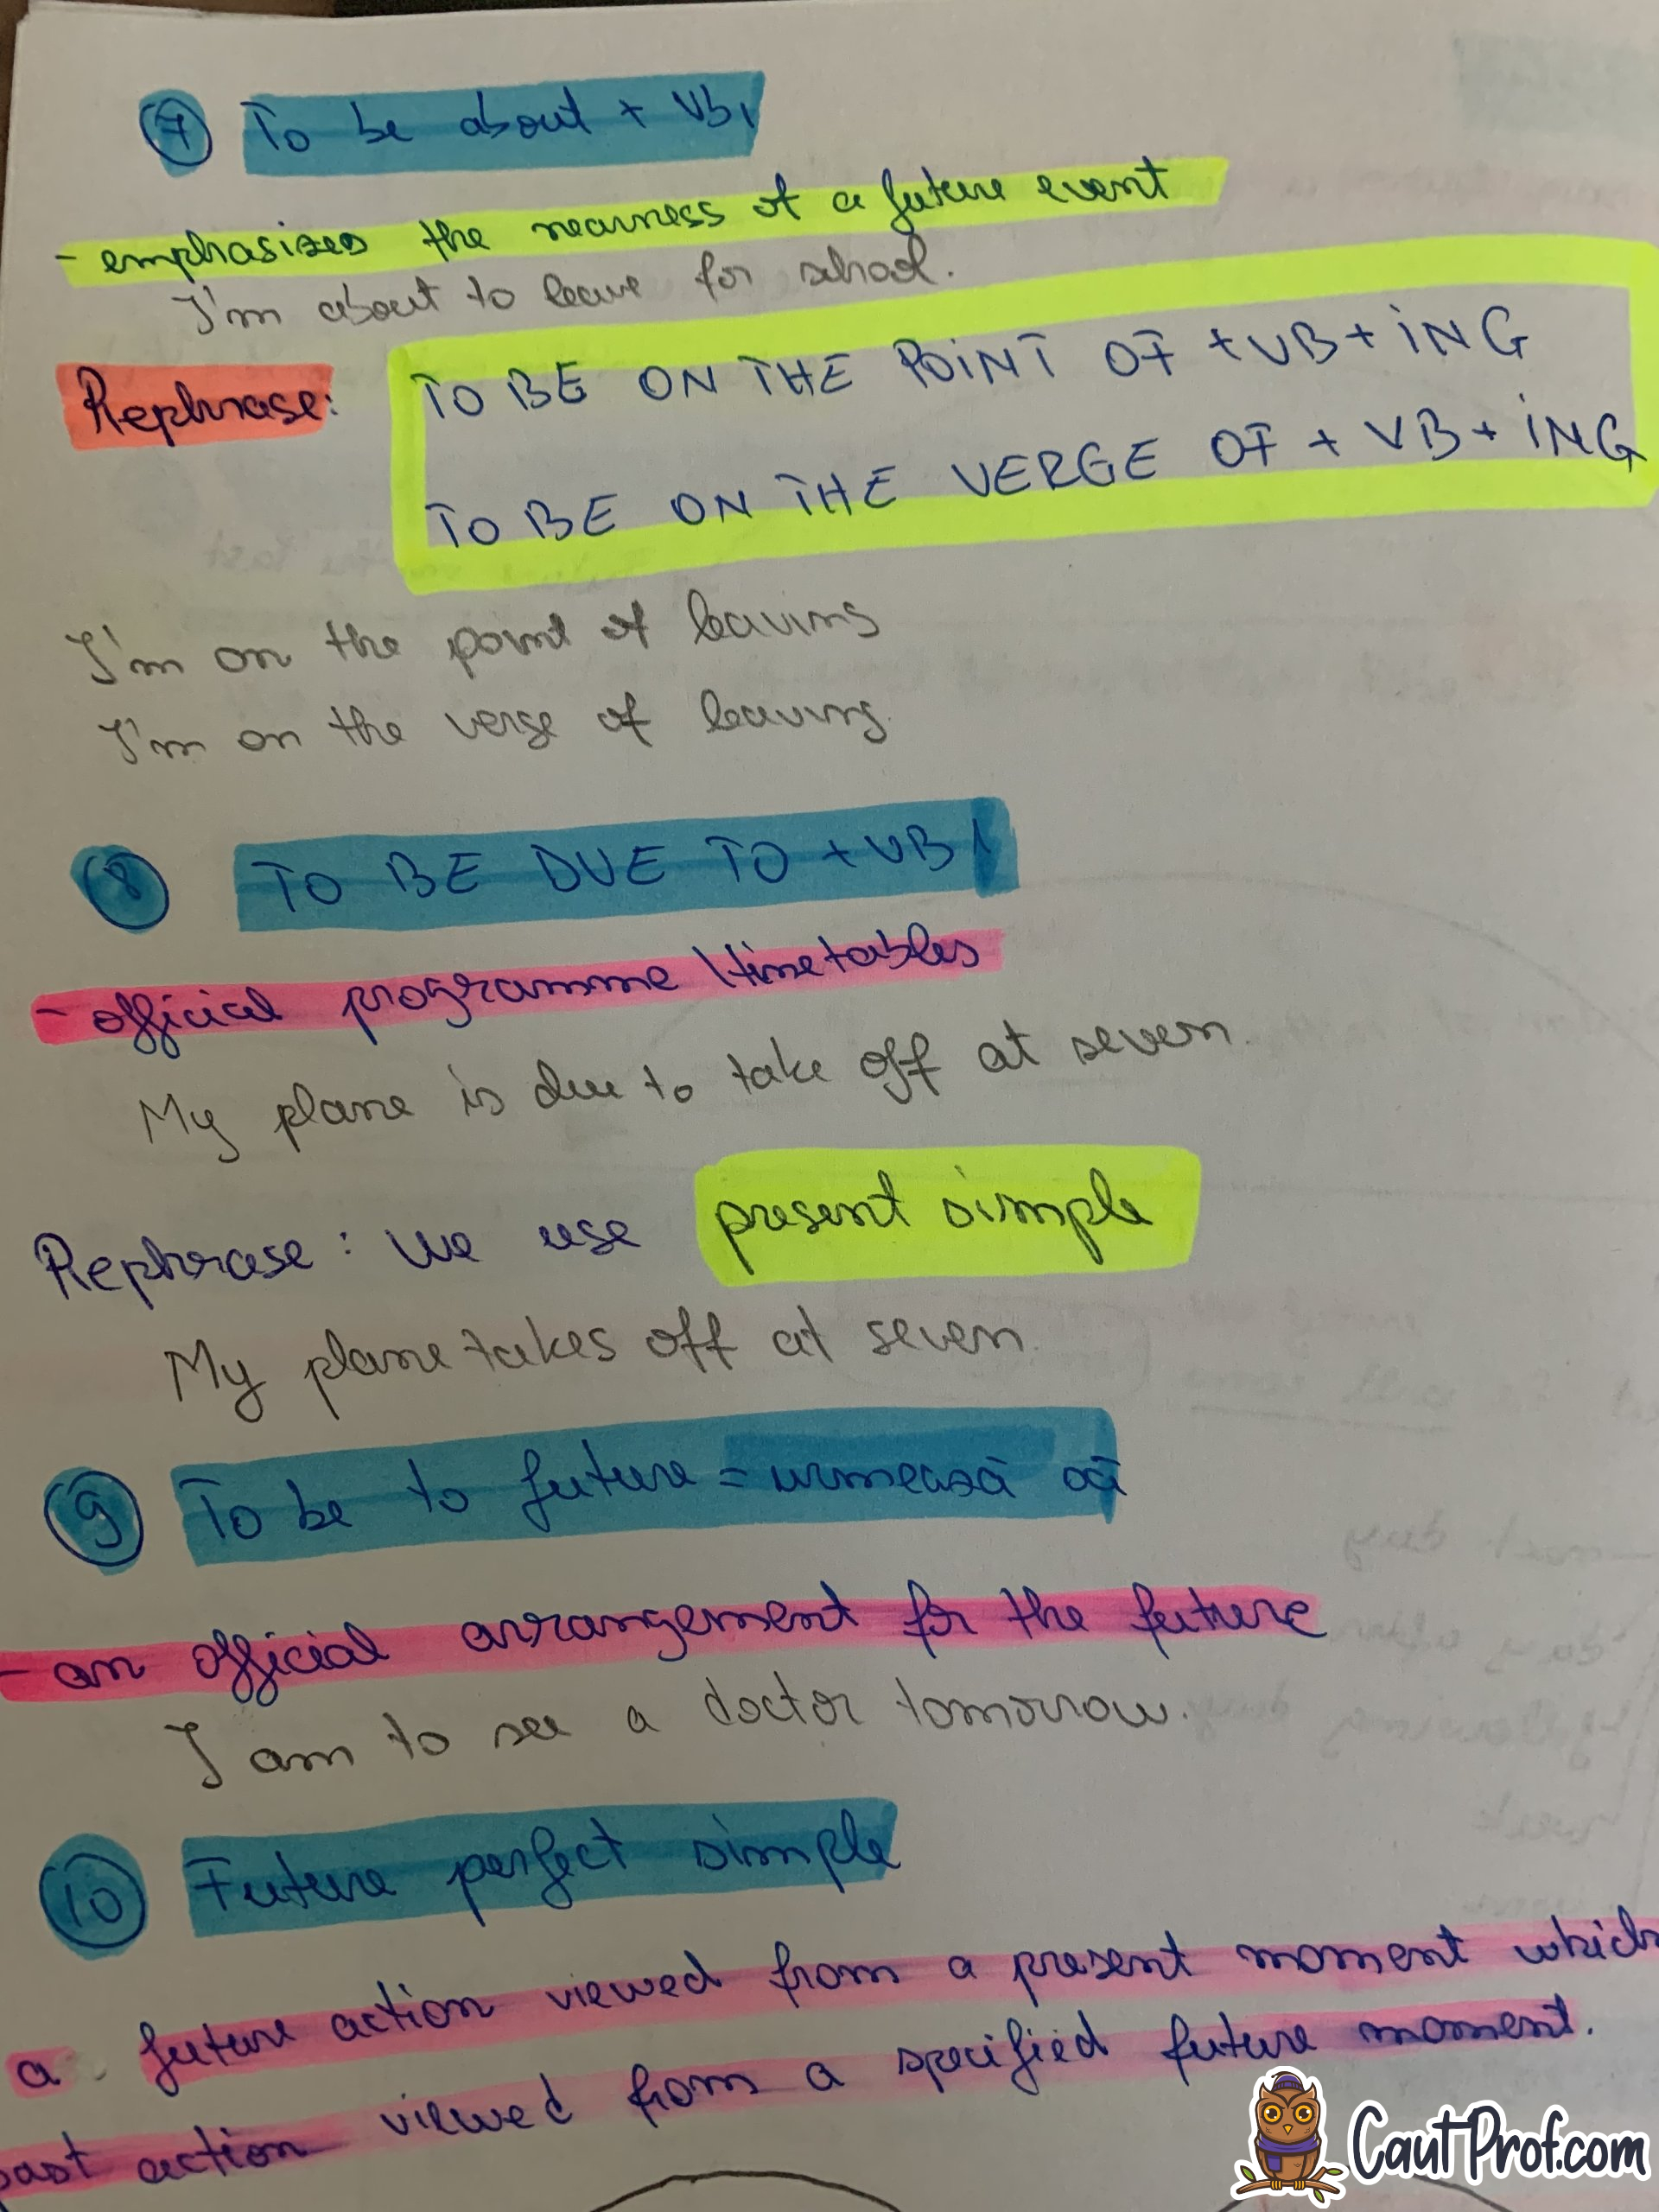 7 To be about + Vb1
- emphasizes the nearness of a future event
I'm about to leave for school.
Rephrase: TO BE ON THE POINT OF + VB + ING
TO BE ON THE VERGE OF + VB + ING
I'm on the point of leaving
I'm on the verge of leaving.
8 TO BE DUE TO + VB1
- official programme \timetables
My plane is due to take off at seven.
Rephrase: we use present simple
My plane takes off at seven.
9 To be to future = urmează să
- an official arrangement for the future
I am to see a doctor tomorrow.
10 Future perfect simple
a future action viewed from a present moment which
past action viewed from a specified future moment.
CautProf.com